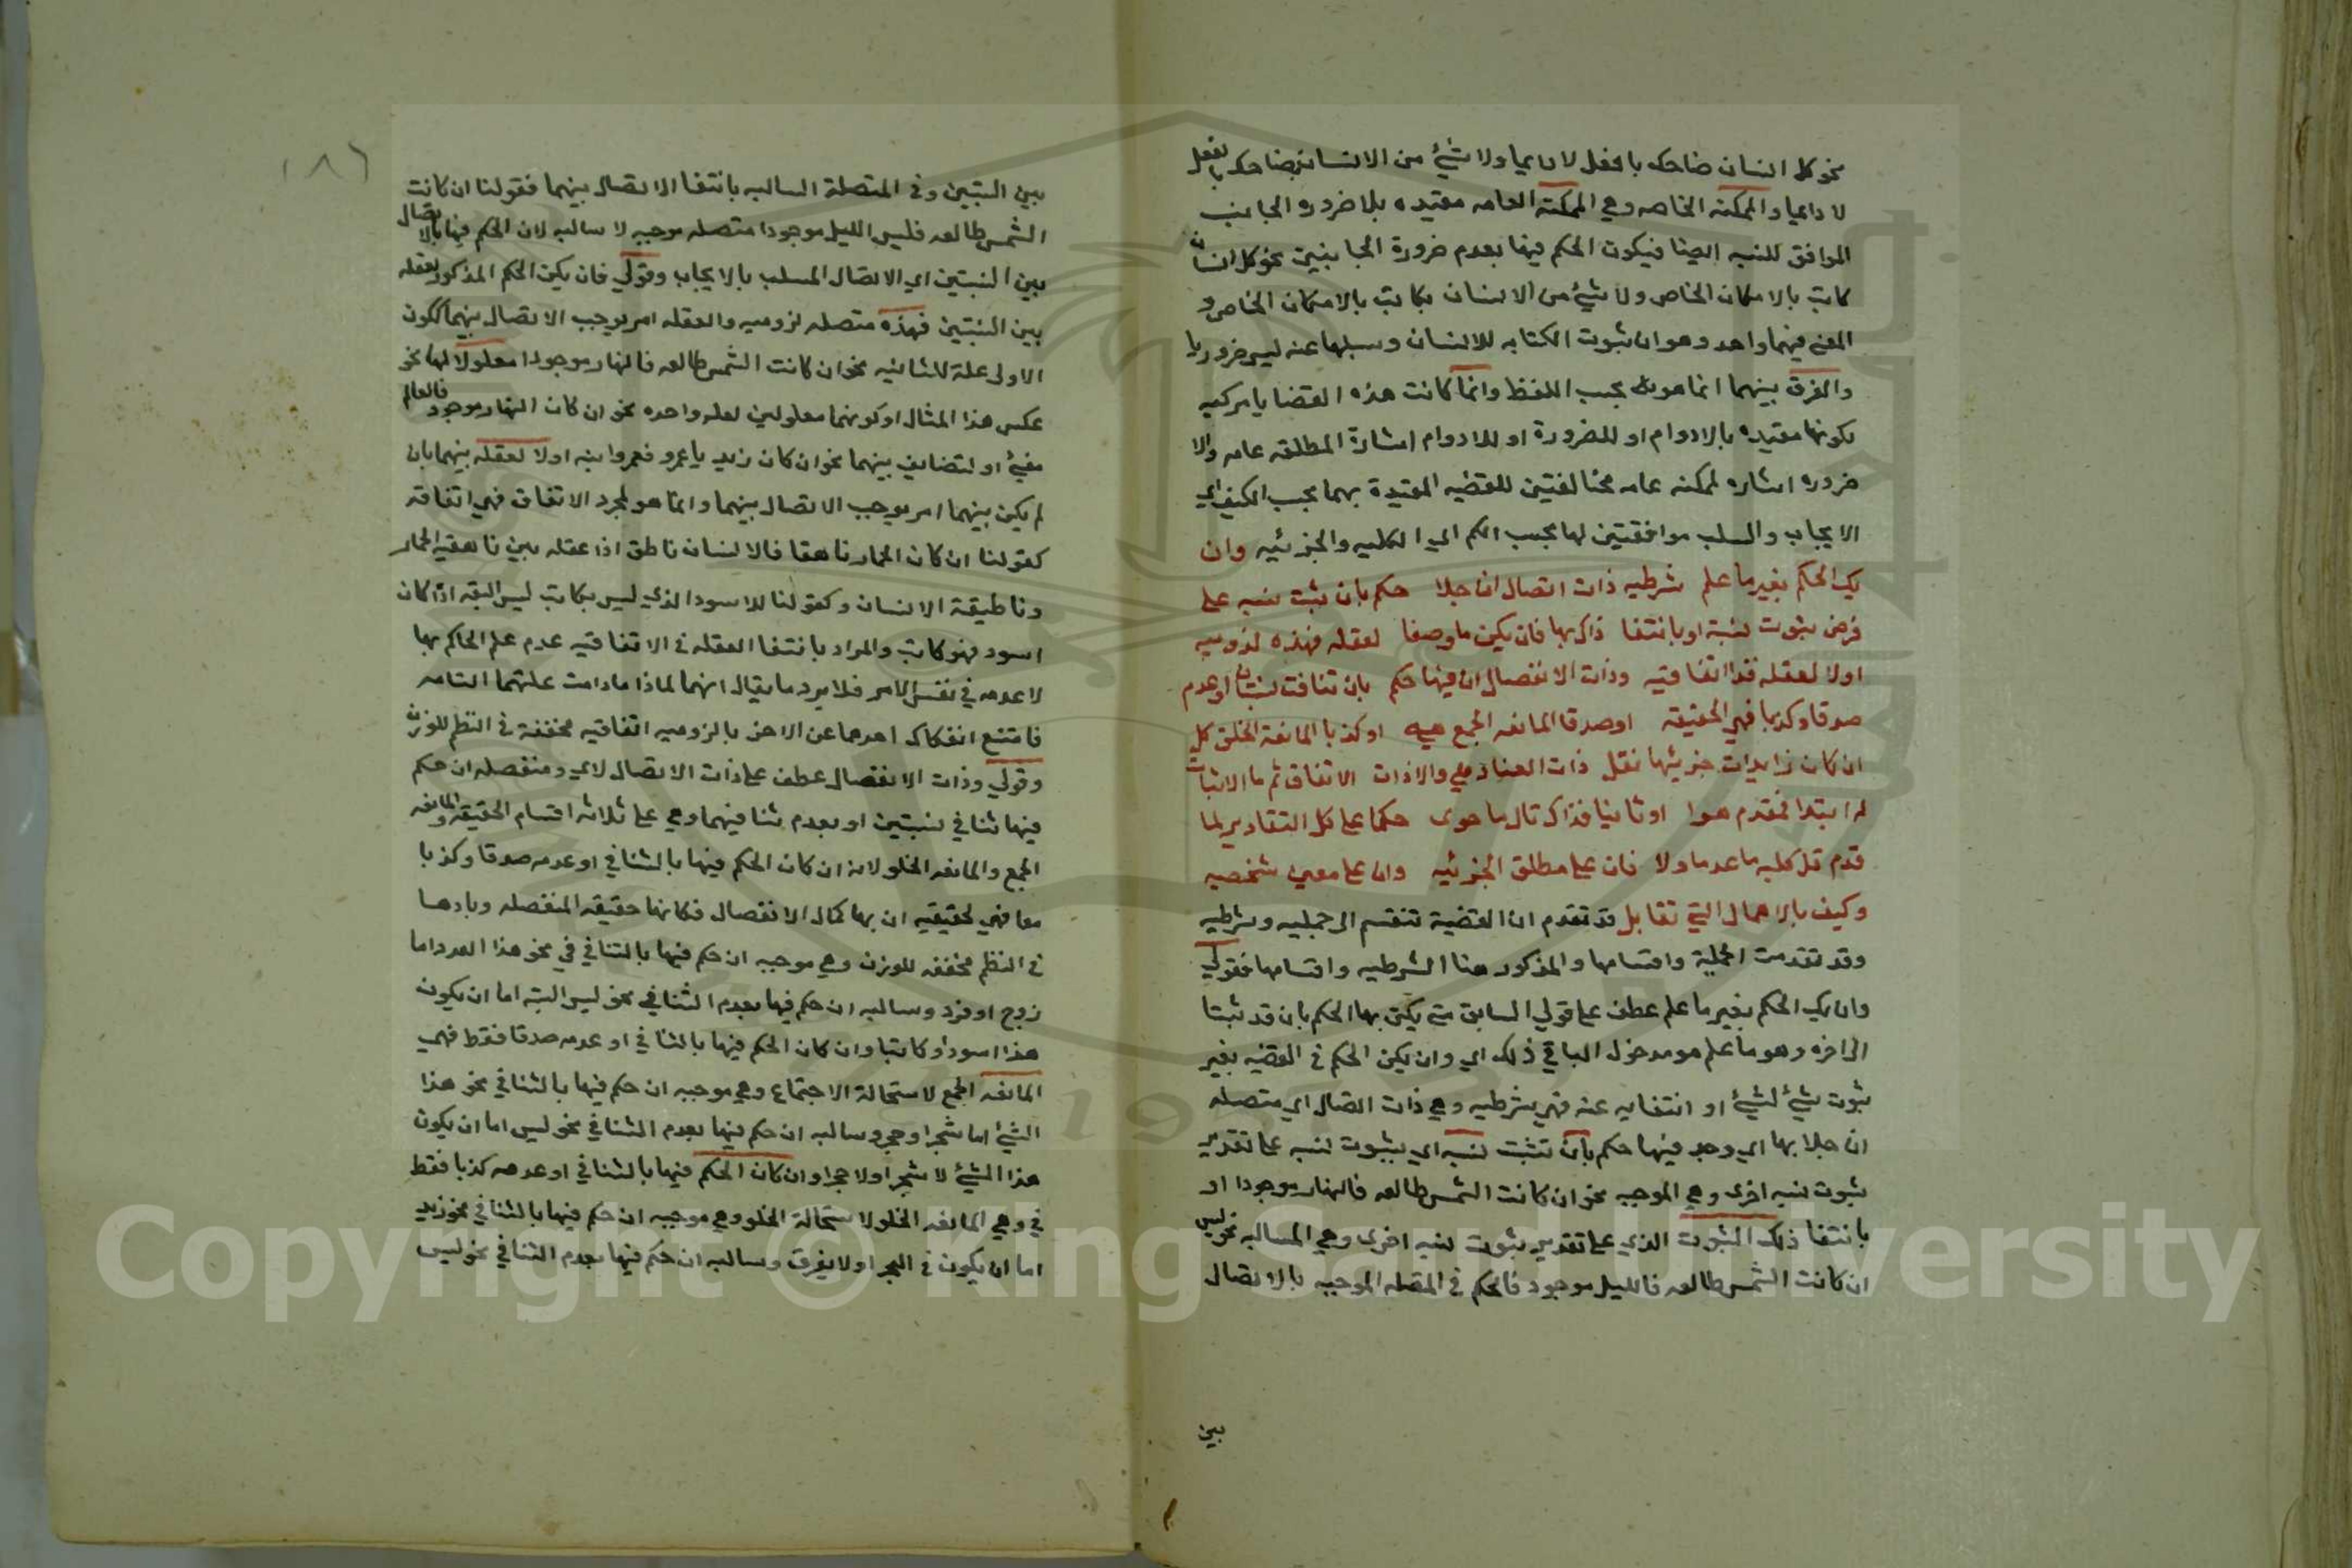 نحو كل انسان ضاحك بالفعل لا دايما ولا شئ من الانسان بضاحك بالفعل
لا دايما والممكنة الخاصه وهي الممكنة العامه مقيده بلا ضروره الجانب
الموافق للنسبه ايضا فيكون الحكم فيها بعدم ضرورة الجانبين نحو كل انسان
كاتب بالامكان الخاص ولا شئ من الانسان بكاتب بالامكان الخاص و
المعنى فيهما واحد وهو ان ثبوت الكتابه للانسان وسلبها عنه ليس ضروريا
والفرق بينهما انما هو بحسب اللفظ وانما كانت هذه القضايا مركبه
بكونها مقيده باللادوام او للضرورة او اللادوام اشارة المطلقه عامه والا
ضروره اشاره لممكنه عامه مخالفتين للقضيه المقيدة بهما بحسب الكيف اي
الايجاب والسلب موافقتين لها بحسب الكم اي الكليه والجزئيه وان
يك الحكم بغير ما علم شرطيه ذات اتصال ان جلا حكم بان يثبت نسبه على
فرض ثبوت نسبة او بانتفا ذاك بها فان يكن ما وصفا لعقله فهذه لزوميه
اولا لعقله قد اتفاقيه وذات الانفصال ان فيها حكم بان تنافت نسبتان او عدم
صدقا وكذبا فهي الحقيقه او صدقا المانعه الجمع هيه او كذبا المانعة الخلق كل
ان كان زايدات جزئيها نقل ذات العناد هي والا ذات الاتفاق ثم ما الاثبات
له ابتدا فمقدم هوا او ثانيا فذاك تال ما حوى حكما على كل التقادير لما
قدم قل كليه ما عدما ولا فان على مطلق الجزئيه وان على معين شخصيه
وكيف بالاهمال التي تقابل قد تقدم ان القضية تنقسم الى حمليه وشرطيه
وقد تقدمت الحملية واقسامها والمذكور هنا الشرطيه واقسامها فقولي
وان يك الحكم بغير ما علم عطف على قولي السابق متى يكن بها الحكم بان قد ثبتا
الى اخره وهو ما علم هو مدخول الباقي ذلك اي وان يكن الحكم في القضيه بغير
ثبوت شئ لشئ او انتفايه عنه فهي شرطيه وهي ذات اتصال اي متصله
ان جلا بها اي وجد فيها حكم بان تثبت نسبه اي بثبوت نسبه على تقدير
ثبوت نسبه اخرى وهي الموجبه نحو ان كانت الشمس طالعه فالنهار موجودا او
بانتفا ذلك الثبوت الذي على تقدير ثبوت نسبه اخرى وهي السالبه نحو ليس
ان كانت الشمس طالعه فالليل موجود فالحكم في المتصله الموجبه بالاتصال
بين
١٨٦
بين النسبتين وفي المتصلة السالبه بانتفا الاتصال بينهما فقولنا ان كانت
الشمس طالعه فليس الليل موجودا متصله موجبه لا سالبه لان الحكم فيها بالاتصال
بين النسبتين اي الاتصال السلب بالايجاب وقولي فان يكن الحكم المذكور لعقله
بين النسبتين فهذه متصله لزوميه والعقله امر يوجب الاتصال بينهما ككون
الاولى علة للثانيه نحو ان كانت الشمس طالعه فالنهار موجودا معلولا لها نحو
عكس هذا المثال او كونهما معلولين لعله واحده نحو ان كان النهار موجود فالعالم
مضئ او لتضايف بينهما نحو ان كان زيد با عمرو فعمرو ابنه اولا لعقله بينهما بان
لم يكن بينهما امر يوجب الاتصال بينهما وانما هو لمجرد الاتفاق فهي اتفاقه
كقولنا ان كان الحمار ناهقا فالانسان ناطق اذا عقله بين ناهقيه الحمار
وناطيقة الانسان وكقولنا للاسود الذي ليس بكاتب ليس البته اذا كان
اسود فهو كاتب والمراد بانتفا العقله في الاتفاقيه عدم علم الحاكم بها
لا عدمه في نفس الامر فلا يرد ما يقال انهما لماذا ما دامت علتهما التامه
فامتنع انفكاك احدهما عن الاخر بالزوميه اتفاقيه مخففة في النظم للوزن
وقولي وذات الانفصال عطف على ذات الاتصال لاي ومنفصله ان حكم
فيها بتنافي نسبتين او بعدم تنافيهما وهي على ثلاثه اقسام الحقيقه والمانعه
الجمع والمانعه الخلو لانه ان كان الحكم فيها بالتنافي او عدمه صدقا وكذبا
معا فهي لحقيقيه ان بها كمال الانفصال فكانها حقيقه المنفصله
في النظم مخففه للوزن وهي موجبه ان حكم فيها بالتنافي في نحو هذا العدد اما
زوج او فرد وسالبه ان حكم فيها بعدم التنافي نحو ليس البته اما ان يكون
هذا اسود او كاتبا وان كان الحكم فيها بالتنافي او عدمه صدقا فقط فهي
المانعه الجمع لاستحالة الاجتماع وهي موجبه ان حكم فيها بالتنافي نحو هذا
الشئ اما شجر او حجر وسالبه ان حكم فيها بعدم التنافي نحو ليس اما ان يكون
هذا الشئ لا شجر او لا حجرا وان كان الحكم فيها بالتنافي او عدمه كذبا فقط
في وهي المانعه الخلو لاستحالة الخلو وهي موجبه ان حكم فيها بالتنافي نحو زيد
اما ان يكون في البحر او لا يغرق وسالبه ان حكم فيها بعدم التنافي نحو ليس
Copyright © King Saud University